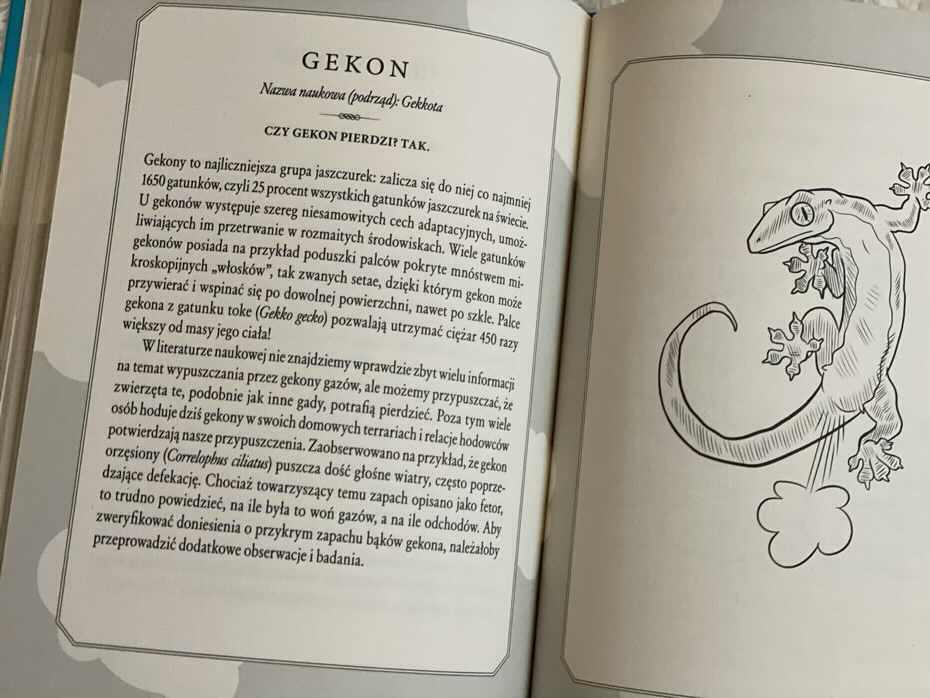 GEKON
Nazwa naukowa (podrząd): Gekkota
CZY GEKON PIERDZI? TAK.
Gekony to najliczniejsza grupa jaszczurek: zalicza się do niej co najmniej
1650 gatunków, czyli 25 procent wszystkich gatunków jaszczurek na świecie.
U gekonów występuje szereg niesamowitych cech adaptacyjnych, umoż-
liwiających im przetrwanie w rozmaitych środowiskach. Wiele gatunków
gekonów posiada na przykład poduszki palców pokryte mnóstwem mi-
kroskopijnych „włosków”, tak zwanych setae, dzięki którym gekon może
przywierać i wspinać się po dowolnej powierzchni, nawet po szkle. Palce
gekona z gatunku toke (Gekko gecko) pozwalają utrzymać ciężar 450 razy
większy od masy jego ciała!
W literaturze naukowej nie znajdziemy wprawdzie zbyt wielu informacji
na temat wypuszczania przez gekony gazów, ale możemy przypuszczać, że
zwierzęta te, podobnie jak inne gady, potrafią pierdzieć. Poza tym wiele
osób hoduje dziś gekony w swoich domowych terrariach i relacje hodowców
potwierdzają nasze przypuszczenia. Zaobserwowano na przykład, że gekon
orzęsiony (Correlophus ciliatus) puszcza dość głośne wiatry, często poprze-
dzające defekację. Chociaż towarzyszący temu zapach opisano jako fetor,
to trudno powiedzieć, na ile była to woń gazów, a na ile odchodów. Aby
zweryfikować doniesienia o przykrym zapachu bąków gekona, należałoby
przeprowadzić dodatkowe obserwacje i badania.